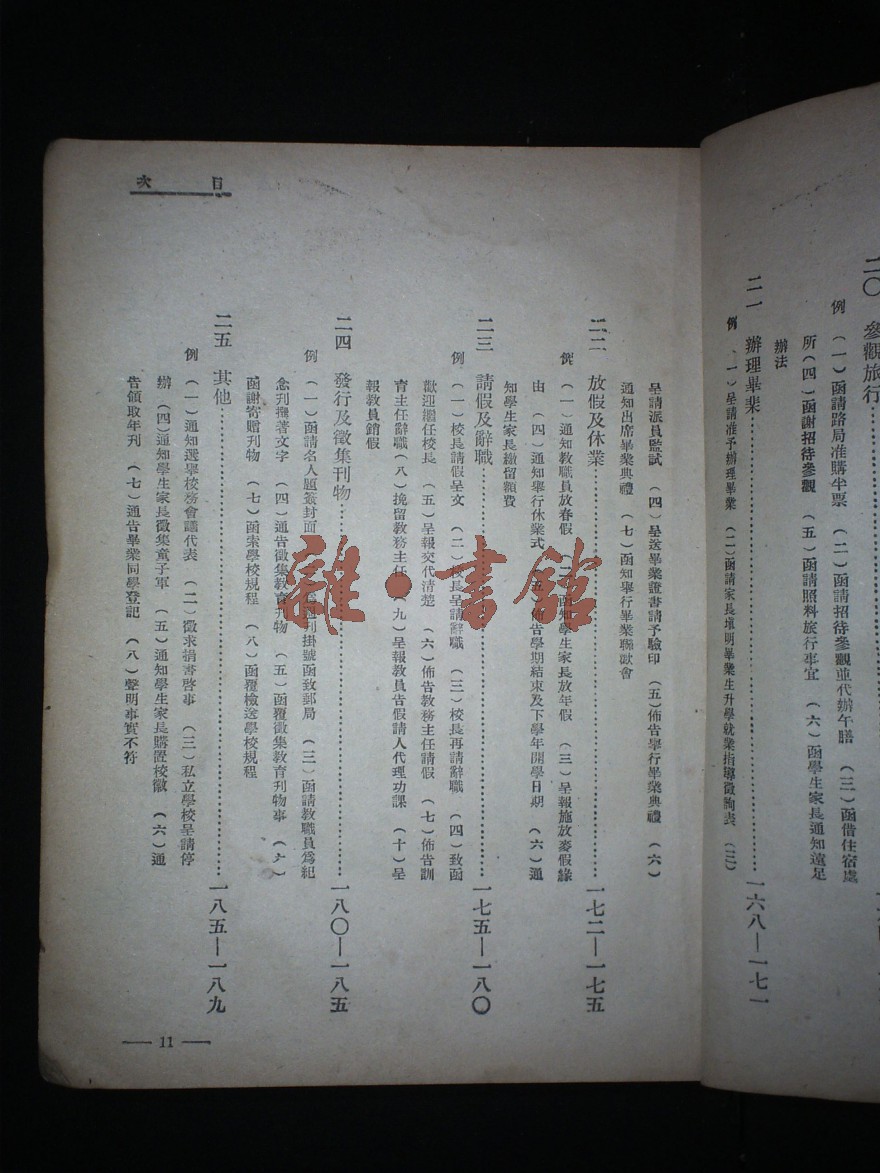 二〇 參觀旅行
例 (一)函請路局准購半票 (二)函請招待參觀並代辦午膳 (三)函借住宿處
所 (四)函謝招待參觀 (五)函請照料旅行事宜 (六)函學生家長通知遠足
辦法
二一 辦理畢業……一六八—一七一
例 (一)呈請准予辦理畢業 (二)函請家長填明畢業生升學就業指導徵詢表 (三)
目次
呈請派員監試 (四)呈送畢業證書請予驗印 (五)佈告舉行畢業典禮 (六)
通知出席畢業典禮 (七)函知舉行畢業聯歡會
二二 放假及休業……一七二—一七五
例 (一)通知教職員放春假 (二)函知學生家長放年假 (三)呈報施放麥假緣
由 (四)通知舉行休業式 (五)佈告學期結束及下學年開學日期 (六)通
知學生家長繳留額費
二三 請假及辭職……一七五—一八〇
例 (一)校長請假呈文 (二)校長呈請辭職 (三)校長再請辭職 (四)致函
歡迎繼任校長 (五)呈報交代清楚 (六)佈告教務主任請假 (七)佈告訓
育主任辭職 (八)挽留教務主任 (九)呈報教員告假請人代理功課 (十)呈
報教員銷假
二四 發行及徵集刊物……一八〇—一八五
例 (一)函請名人題簽封面 週刊掛號函致郵局 (三)函請教職員爲紀
念刊撰著文字 (四)通告徵集教育刊物 (五)函覆徵集教育刊物事 (六)
函謝寄贈刊物 (七)函索學校規程 (八)函覆檢送學校規程
二五 其他……一八五—一八九
例 (一)通知選舉校務會議代表 (二)徵求捐書啓事 (三)私立學校呈請停
辦 (四)通知學生家長徵集童子軍 (五)通知學生家長購置校徽 (六)通
告領取年刊 (七)通告畢業同學登記 (八)聲明事實不符
— 11 —
雜·書館